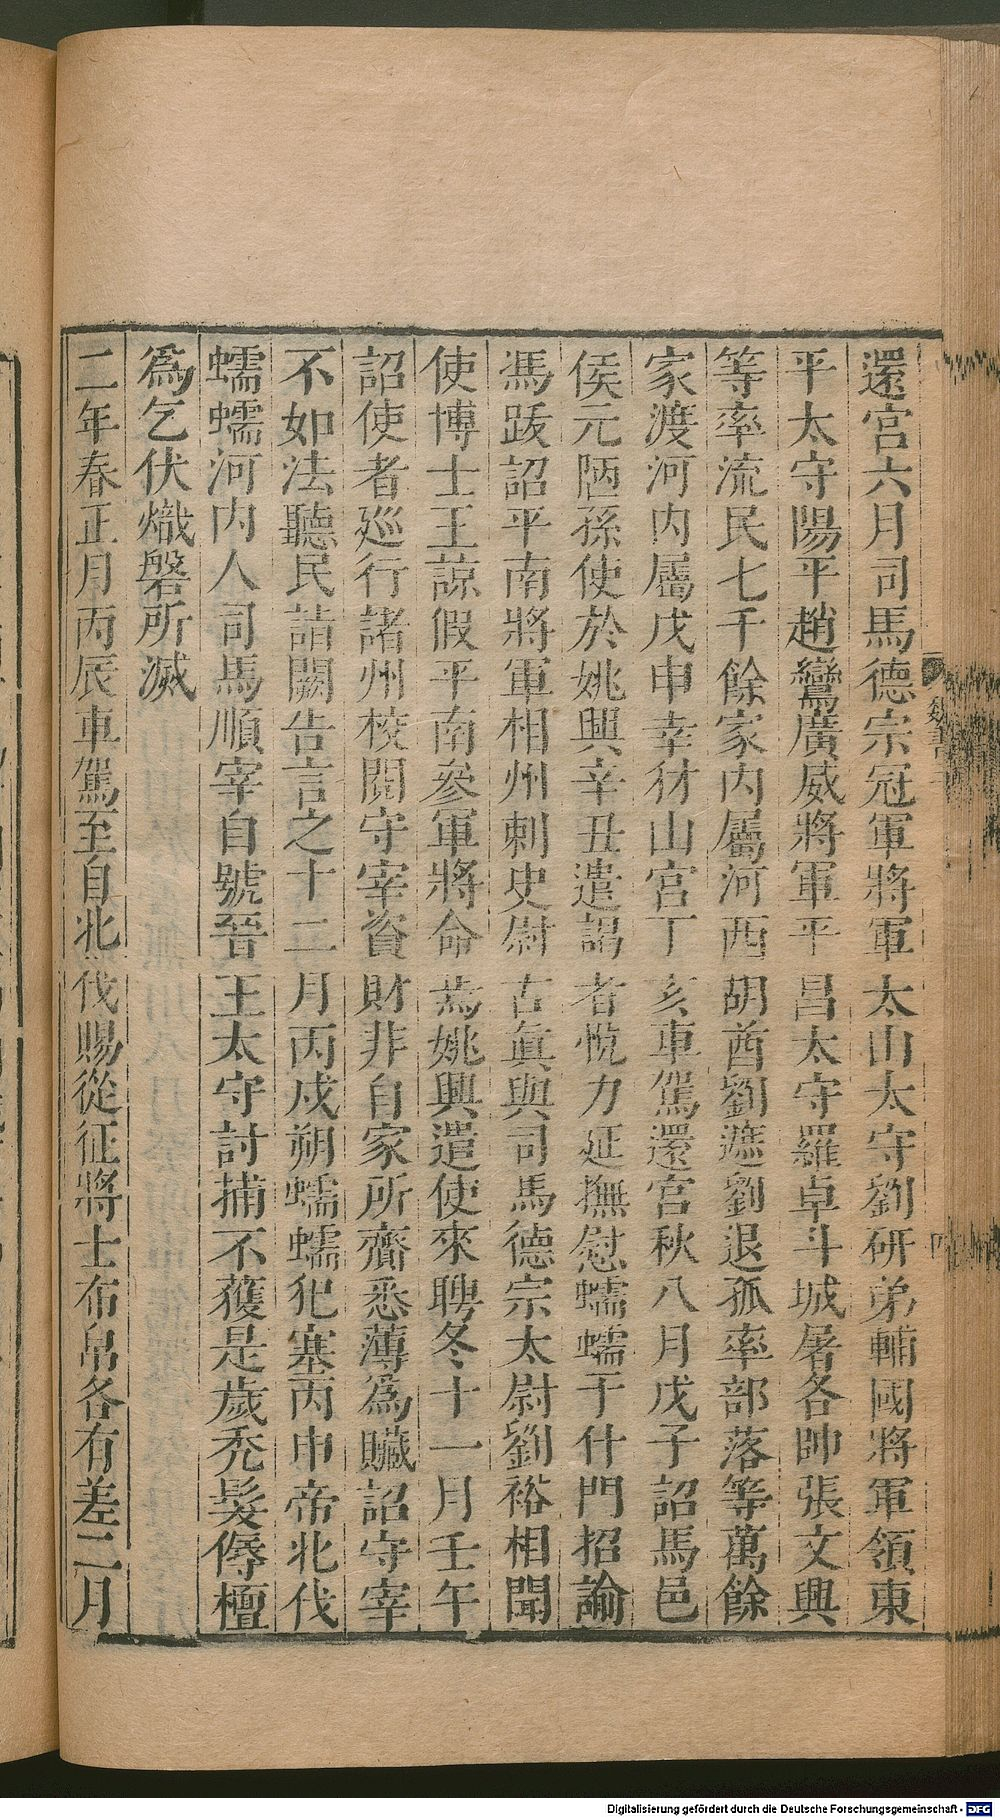 還宮六月司馬德宗冠軍將軍太山太守劉研弟輔國將軍領東
平太守陽平趙鸞廣威將軍平昌太守羅卓斗城屠各帥張文興
等率流民七千餘家內屬河西胡酋劉遮劉退孤率部落等萬餘
家渡河內屬戊申幸犲山宮丁亥車駕還宮秋八月戊子詔馬邑
侯元陋孫使於姚興辛丑遣謁者悅力延撫慰蠕蠕于什門招諭
馮跋詔平南將軍相州刺史尉古真與司馬德宗太尉劉裕相聞
使博士王諒假平南參軍將命焉姚興遣使來聘冬十一月壬午
詔使者巡行諸州校閱守宰資財非自家所齎悉薄為贓詔守宰
不如法聽民詣闕告言之十二月丙戌朔蠕蠕犯塞丙申帝北伐
蠕蠕河內人司馬順宰自號晉王太守討捕不獲是歲禿髮傉檀
為乞伏熾磐所滅
二年春正月丙辰車駕至自北伐賜從征將士布帛各有差二月
魏書三
四
Digitalisierung gefördert durch die Deutsche Forschungsgemeinschaft - DFG